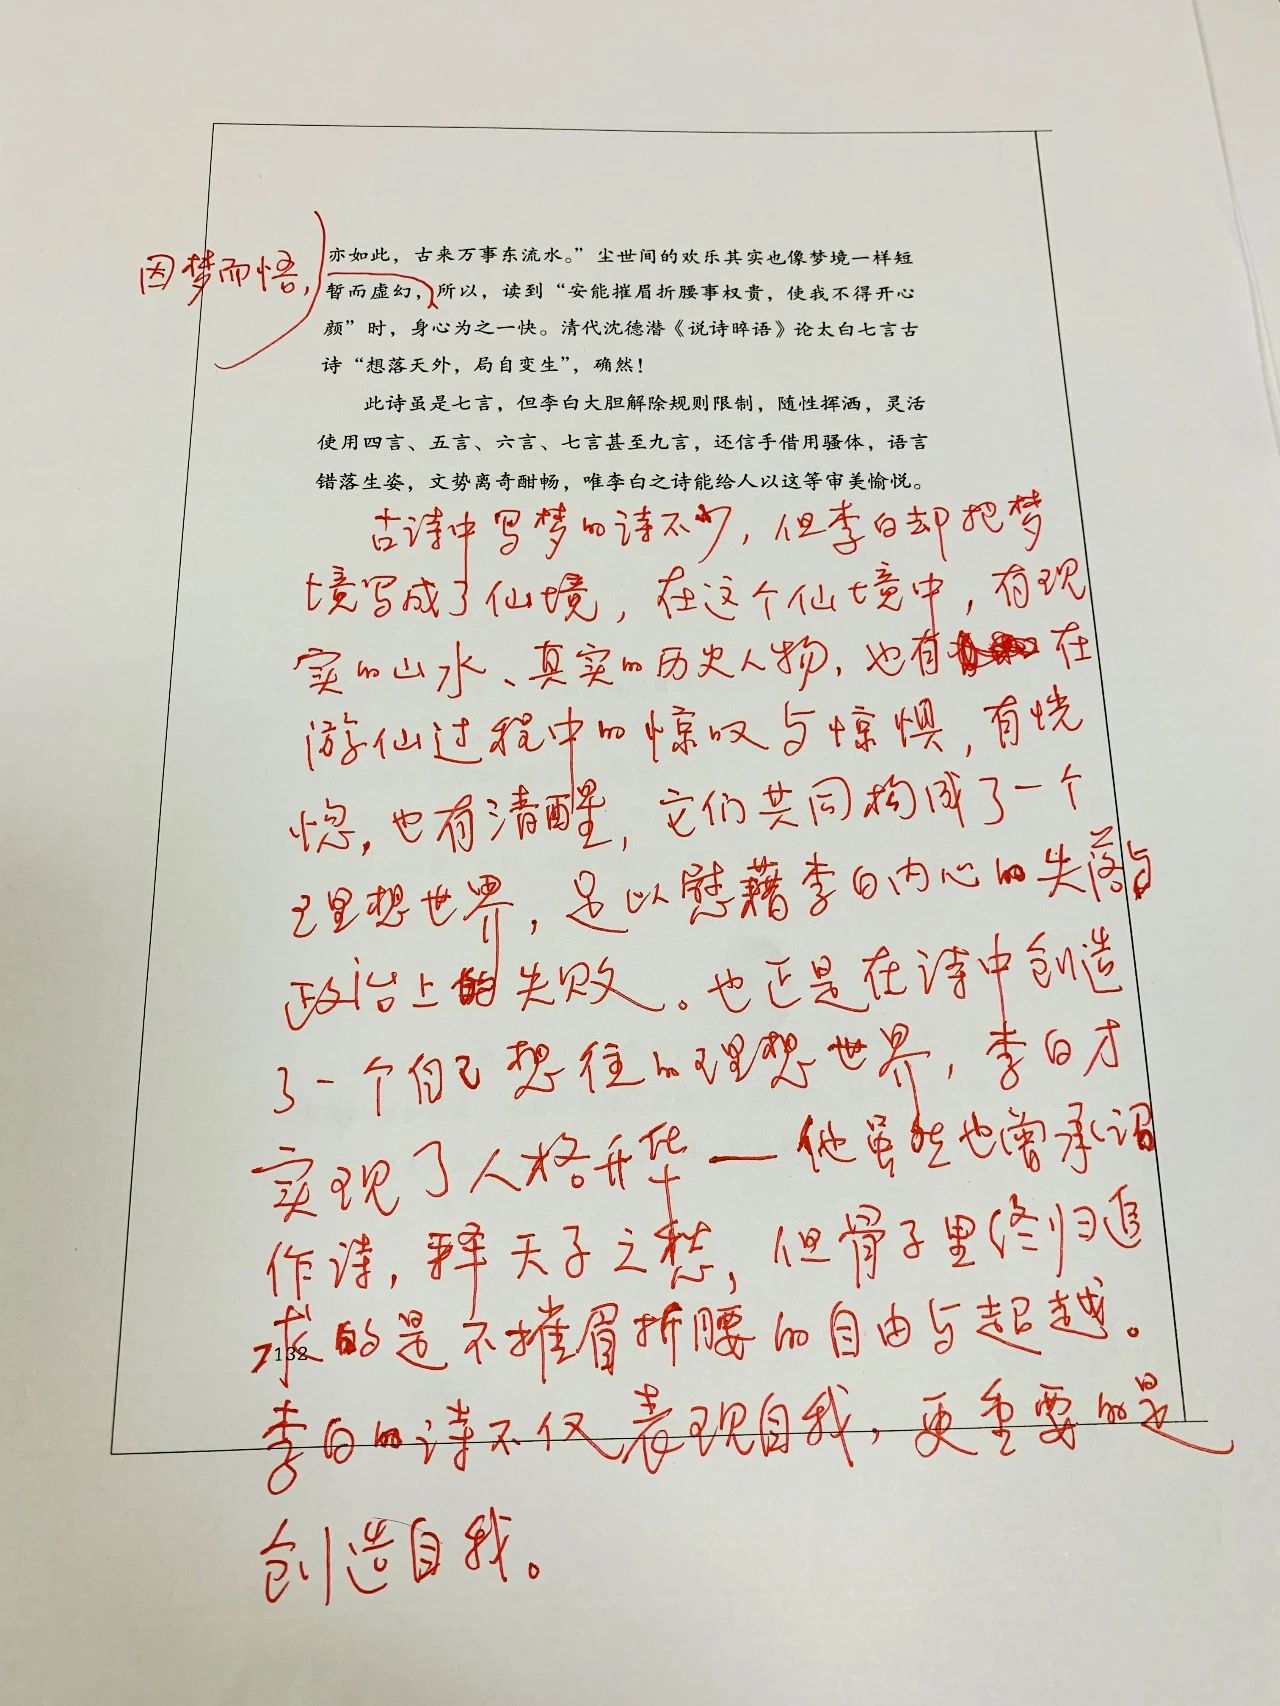 因梦而悟,
亦如此，古来万事东流水。”尘世间的欢乐其实也像梦境一样短
暂而虚幻，所以，读到“安能摧眉折腰事权贵，使我不得开心
颜”时，身心为之一快。清代沈德潜《说诗晬语》论太白七言古
诗“想落天外，局自变生”，确然！
此诗虽是七言，但李白大胆解除规则限制，随性挥洒，灵活
使用四言、五言、六言、七言甚至九言，还信手借用骚体，语言
错落生姿，文势离奇酣畅，唯李白之诗能给人以这等审美愉悦。
古诗中写梦的诗不少，但李白却把梦
境写成了仙境，在这个仙境中，有现
实的山水、真实的历史人物，也有在
游仙过程中的惊叹与惊惧，有恍
惚，也有清醒，它们共同构成了一个
理想世界，足以慰藉李白内心的失落与
政治上的失败。也正是在诗中创造
了一个自己想往的理想世界，李白才
实现了人格升华—他虽然也曾承诏
作诗，释天子之愁，但骨子里终归追
求的是不摧眉折腰的自由与超越。
132
李白的诗不仅表现自我，更重要的是
创造自我。